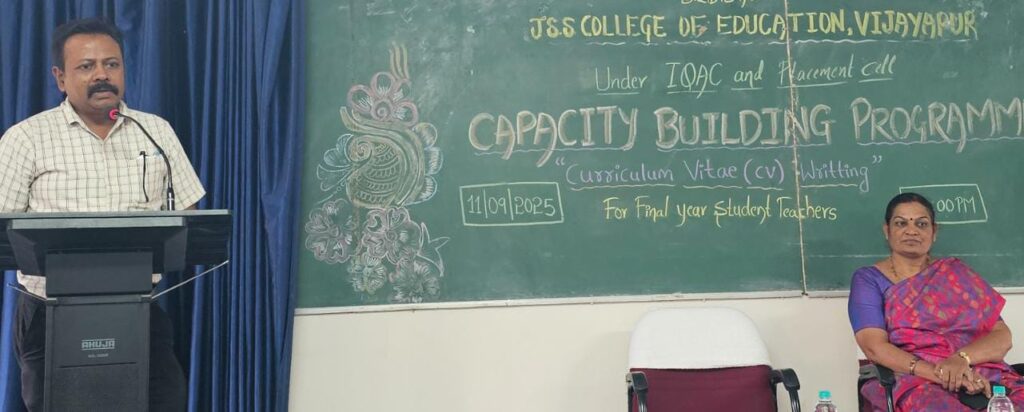 JSS COLLEGE OF EDUCATION, VIJAYAPUR
Under IQAC and Placement Cell
CAPACITY BUILDING PROGRAMM
"Curriculum Vitae (CV) Writting"
11/09/2025
For Final year Student Teachers
:00PM
AHUJA